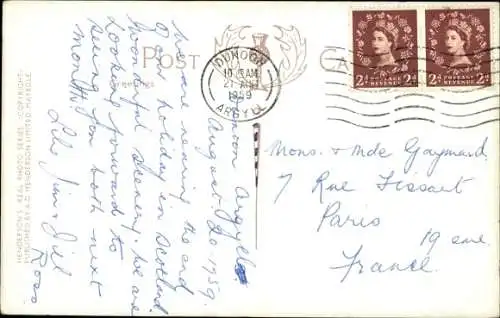 POST CA
Greetings
DUNOON
10 15 AM
21 AUG
1959
ARGYLL
2d POSTAGE REVENUE 2d
2d POSTAGE REVENUE 2d
Dunoon Argyle.
August 20 1959.
We are nearing the end
of our holiday in Scotland.
Wonderful scenery. We are
looking forward to
seeing you both next
month.
Lil Jim
Ross
Mons. & Mde Gaymard
7 Rue Tissart
Paris
19 eme
France.
HENDERSON'S "REAL PHOTO SERIES" (COPYRIGHT)
PUBLISHED BY A.D. HENDERSON LIMITED MAYBOLE